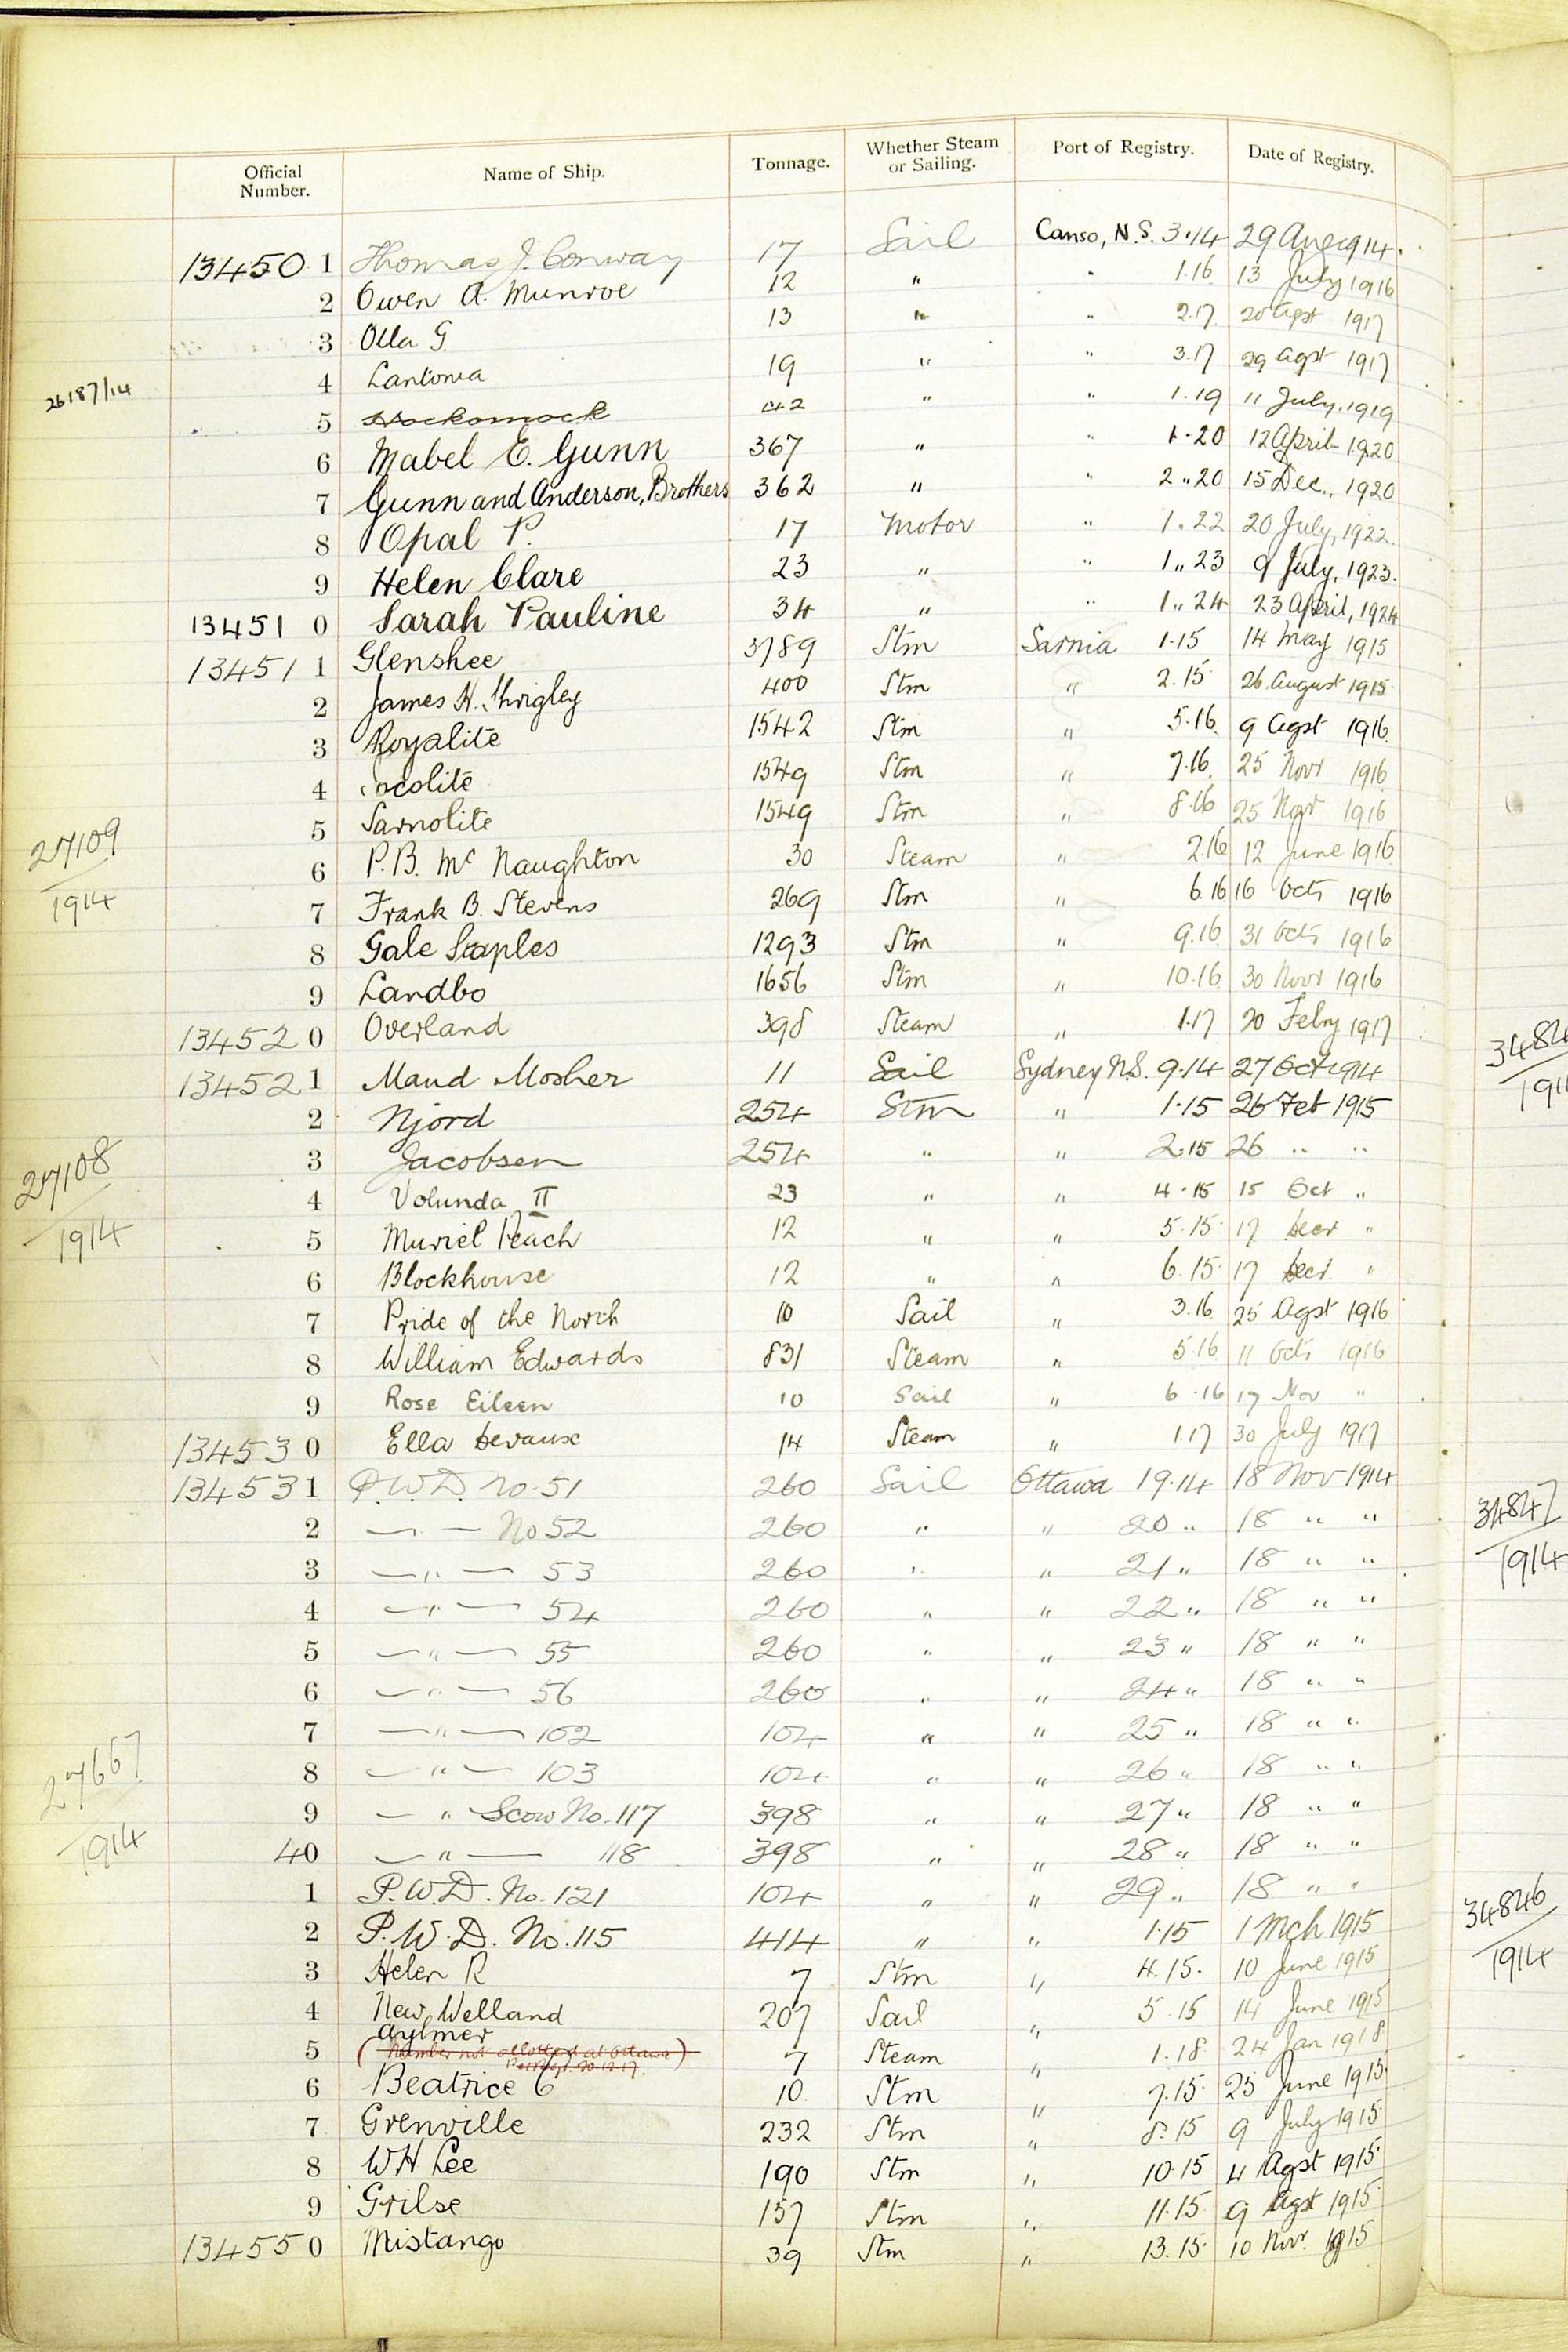 Official Number. Name of Ship. Tonnage. Whether Steam or Sailing. Port of Registry. Date of Registry.
134501 Thomas J. Conway 17 Sail Canso, N.S. 3.14 29 Aug 1914.
2 Owen A. Munroe 12 " " 1.16 13 July 1916
3 Olla G. 13 " " 2.17 20 Agst 1917
26187/14
4 Lantonia 19 " " 3.17 29 Agst 1917
5 Hockomock 42 " " 1.19 11 July. 1919
6 Mabel E. Gunn 367 " " 1.20 12 April 1920
7 Gunn and Anderson, Brothers 362 " " 2..20 15 Dec., 1920
8 Opal P. 17 Motor " 1..22 20 July, 1922.
9 Helen Clare 23 " " 1..23 9 July, 1923.
134510 Sarah Pauline 34 " " 1..24 23 April, 1924
134511 Glenshee 3789 Stm Sarnia 1.15 14 May 1915
2 James H. Shrigley 400 Stm " 2.15 26 August 1915
3 Royalite 1542 Stm " 5.16 9 Agst 1916
4 Iocolite 1549 Stm " 7.16 25 Novr 1916
5 Sarnolite 1549 Stm " 8.16 25 Novr 1916
27109
1914
6 P.B. McNaughton 30 Steam " 2.16 12 June 1916
7 Frank B. Stevens 269 Stm " 6.16 16 Octr 1916
8 Gale Staples 1293 Stm " 9.16 31 Octr 1916
9 Landbo 1656 Stm " 10.16 30 Novr 1916
134520 Overland 398 Steam " 1.17 20 Febry 1917
134521 Maud Mosher 11 Sail Sydney N.S. 9.14 27 Oct 1914
2 Njord 254 Stm " 1.15 26 Feb 1915
27108
1914
3 Jacobsen 254 " " 2.15 26 " "
4 Volunda II 23 " " 4.15 15 Oct "
5 Muriel Peach 12 " " 5.15 17 Decr "
6 Blockhouse 12 " " 6.15 17 Decr "
7 Pride of the North 10 Sail " 3.16 25 Agst 1916
8 William Edwards 831 Steam " 5.16 11 Octr 1916
9 Rose Eileen 10 Sail " 6.16 17 Nov "
134530 Ella Devaux 14 Steam " 1.17 30 July 1917
134531 P.W.D. No. 51 260 Sail Ottawa 19.14 18 Nov 1914
2 — " — No 52 260 " " 20 " 18 " "
3 — " — 53 260 " " 21 " 18 " "
4 — " — 54 260 " " 22 " 18 " "
5 — " — 55 260 " " 23 " 18 " "
6 — " — 56 260 " " 24 " 18 " "
7 — " — 102 104 " " 25 " 18 " "
27667
1914
8 — " — 103 104 " " 26 " 18 " "
9 — " Scow No. 117 398 " " 27 " 18 " "
40 — " — 118 398 " " 28 " 18 " "
1 P.W.D. No. 121 104 " " 29 " 18 " "
2 P.W.D. No. 115 414 " " 1.15 1 Mch 1915
3 Helen R 7 Stm " 4.15. 10 June 1915
4 New Welland 207 Sail " 5.15 14 June 1915
Aylmer
5 (Number not allotted at Ottawa) 7 Steam " 1.18 24 Jan 1918
6 Beatrice C 10 Stm " 7.15 25 June 1915
7 Grenville 232 Stm " 8.15 9 July 1915
8 WH Lee 190 Stm " 10.15 4 Agst 1915
9 Grilse 157 Stm " 11.15 9 Agst 1915
134550 Mistango 39 Stm " 13.15 10 Novr. 1915
34847
1914
34846
1914